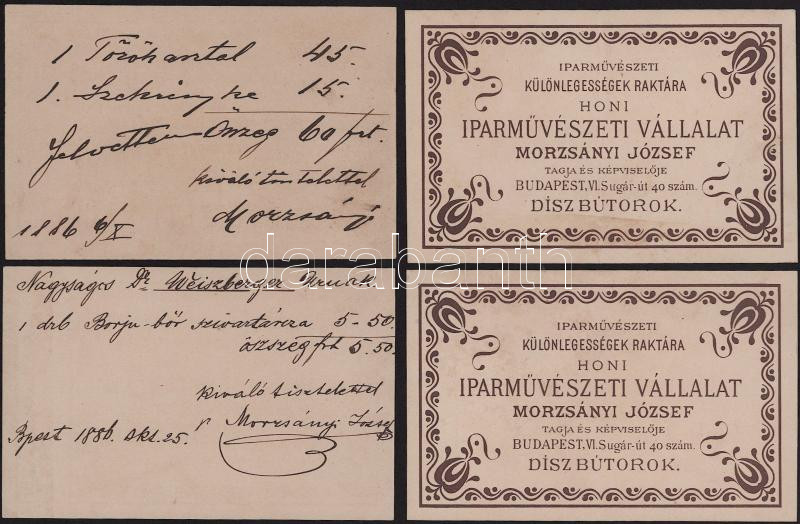 1 Törökantal 45.
1. Szekrényke 15.
felvettem Összeg 60 frt.
kiváló tisztelettel
Morzsányi
1886 6/X
IPARMŰVÉSZETI
KÜLÖNLEGESSÉGEK RAKTÁRA
HONI
IPARMŰVÉSZETI VÁLLALAT
MORZSÁNYI JÓZSEF
TAGJA ÉS KÉPVISELŐJE
BUDAPEST, VI. Sugár-út 40 szám.
DÍSZ BÚTOROK.
darabanth
Nagyságos Dr Weiszberger Urnak.
1 drb Borju-bőr szivartárcza 5-50.
összeg frt 5.50.
kiváló tisztelettel
Morzsányi József
Bpest 1886. okt. 25.
IPARMŰVÉSZETI
KÜLÖNLEGESSÉGEK RAKTÁRA
HONI
IPARMŰVÉSZETI VÁLLALAT
MORZSÁNYI JÓZSEF
TAGJA ÉS KÉPVISELŐJE
BUDAPEST, VI. Sugár-út 40 szám.
DÍSZ BÚTOROK.